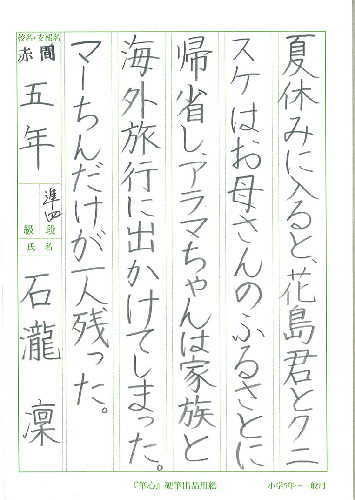 夏休みに入ると、花島君とクニ
スケはお母さんのふるさとに
帰省し、アラマちゃんは家族と
海外旅行に出かけてしまった。
マーちんだけが一人残った。
校名・支部名
赤間
五年
準四
級 段
氏 名
石瀧 凜
『筆心』硬筆出品用紙
小学5年〜一般用